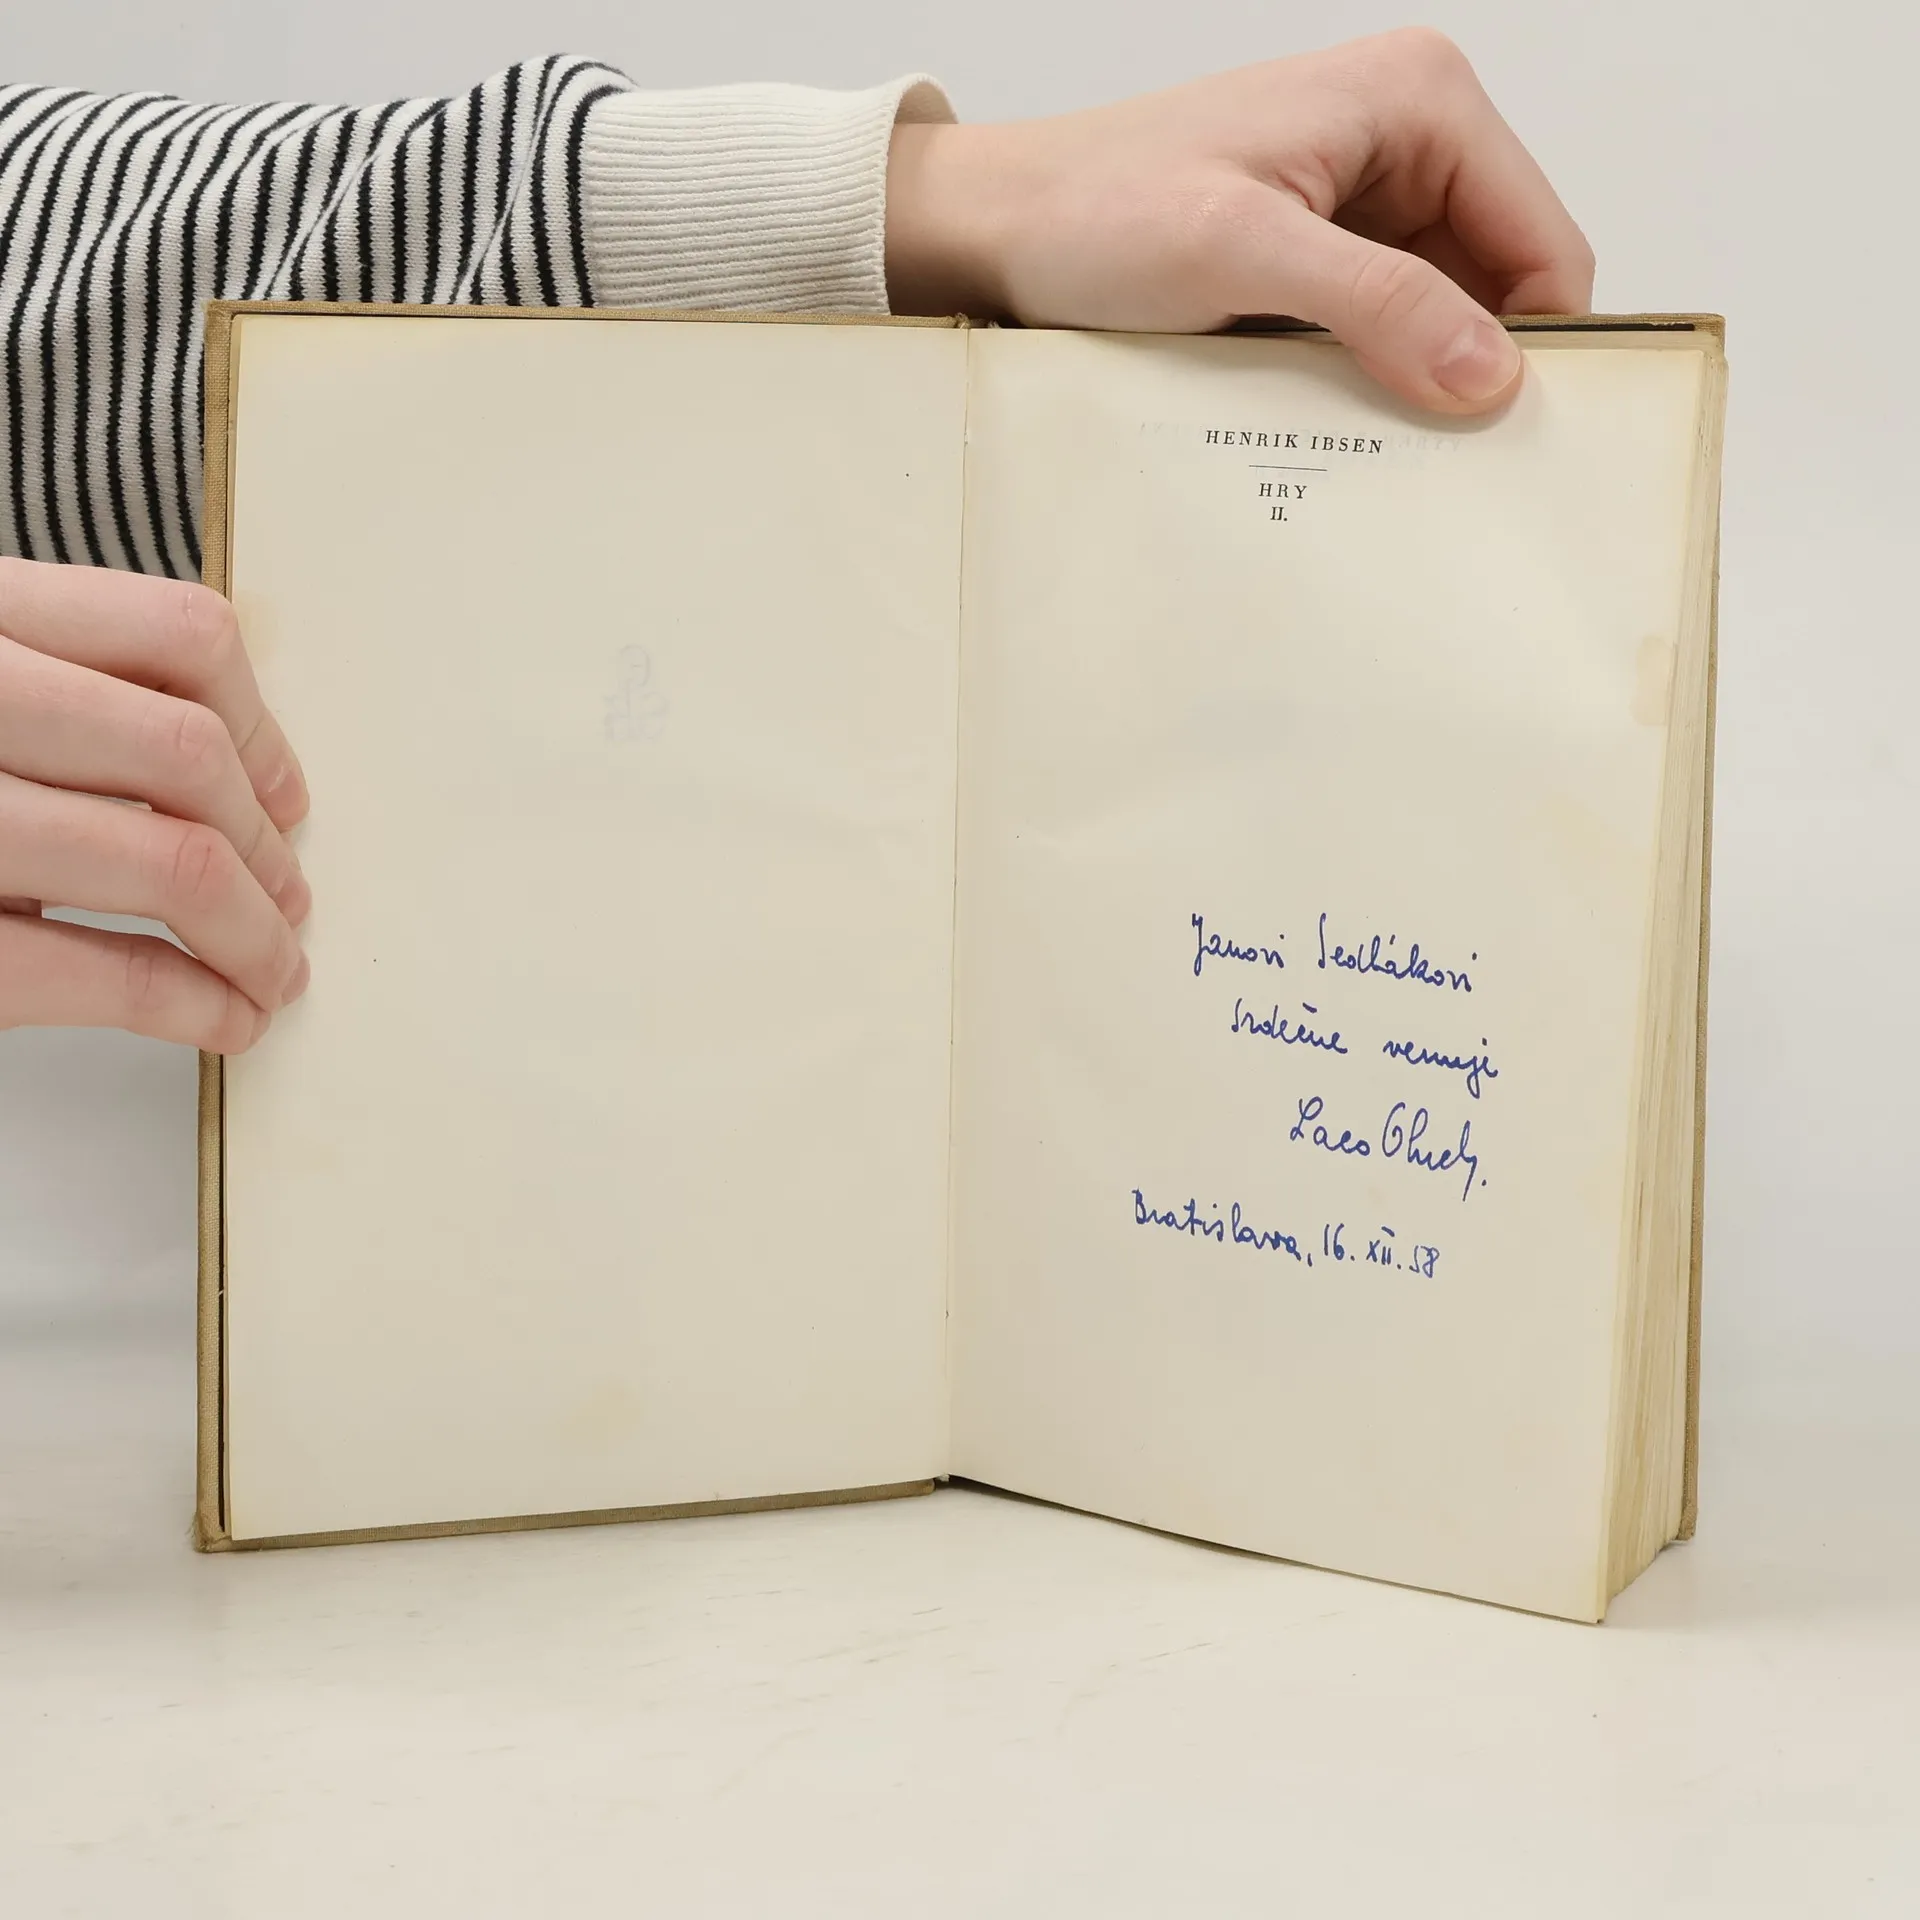 HENRIK IBSEN
HRY
II.
Janovi Sedlákovi
srdečne venuje
Laco Obuch.
Bratislava, 16. XII. 58